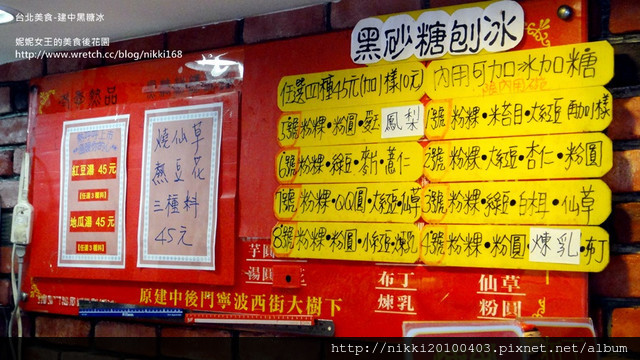 台北美食-建中黑糖冰
妮妮女王的美食後花園
http://www.wretch.cc/blog/nikki168
黑砂糖刨冰
任選四種45元(加1樣10元)
內用可加冰加糖
1號粉粿•粉圓•愛玉 鳳梨
6號粉粿•綠豆•麥片•薏仁
7號粉粿•QQ圓•大紅豆•仙草
8號粉粿•粉圓•小紅豆•煉乳
1號粉粿•米苔目•大紅豆 再加1樣
2號粉粿•大紅豆•杏仁•粉圓
3號粉粿•綠豆•白木耳•仙草
4號粉粿•粉圓•煉乳•布丁
紅豆湯 45元
【任選3種料】
地瓜湯 45元
【任選3種料】
燒仙草
熱豆花
三種料
45元
芋圓
湯圓
布丁
煉乳
仙草
粉圓
原建中後門寧波西街大樹下
http://nikki20100403.pixnet.net/album